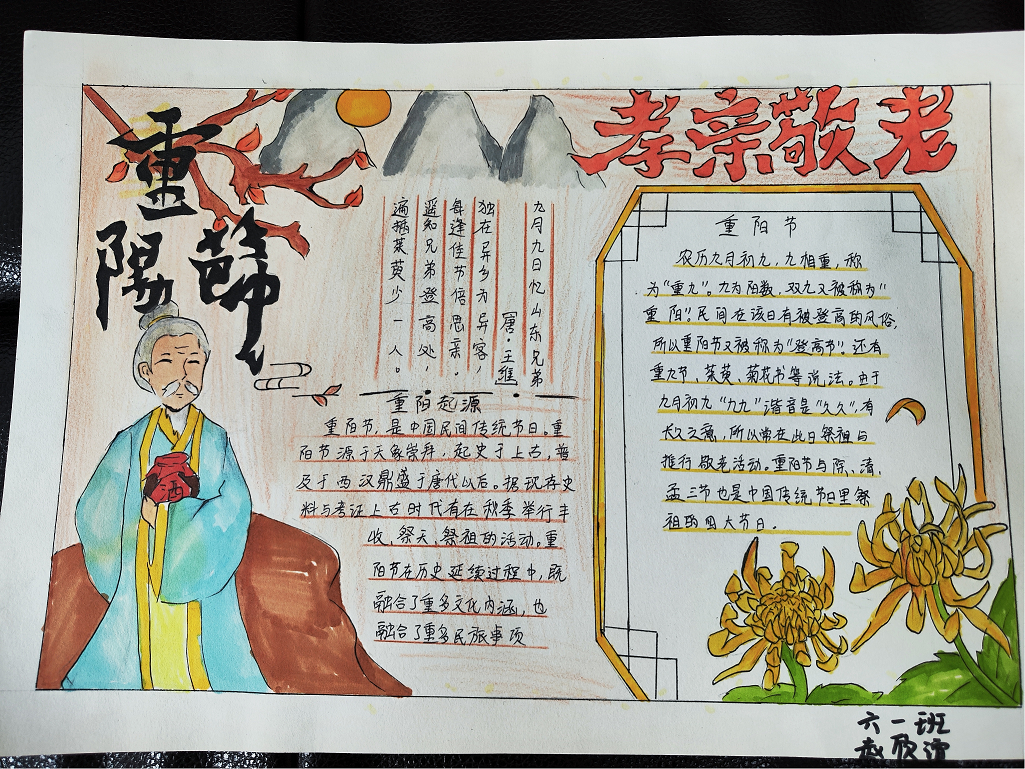 重陽節
孝亲敬老
九月九日忆山东兄弟
【唐·王维】
独在异乡为异客，
每逢佳节倍思亲。
遥知兄弟登高处，
遍插茱萸少一人。
酒
重阳起源
重阳节，是中国民间传统节日。重
阳节源于天象崇拜，起史于上古，普
及于西汉鼎盛于唐代以后。据现存史
料与考证上古时代有在秋季举行丰
收、祭天、祭祖的活动。重
阳节在历史延续过程中，既
融合了重多文化内涵，也
融合了重多民族事项
重阳节
农历九月初九，九相重，称
为“重九”。九为阳数，双九又被称为“
重阳”。民间在该日有被登高的风俗，
所以重阳节又被称为“登高节”。还有
重九节、茱萸、菊花书等说法。由于
九月初九“九九”谐音是“久久”，有
长久之意，所以常在此日祭祖与
推行敬老活动。重阳节与除、清、
盂三节也是中国传统节日里祭
祖的四大节日。
六一班
赵欣